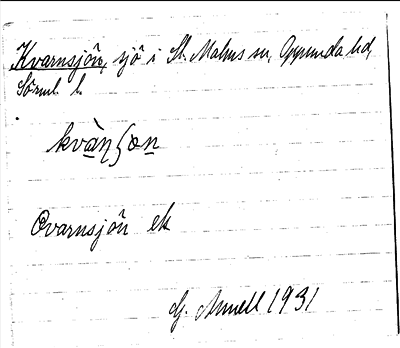 Kvarnsjön, sjö i St. Malms sn, Oppunda hd,
Sörml. l.
kvàṉʃo̱ṉ
Qvarnsjön ek
G. Annell 1931